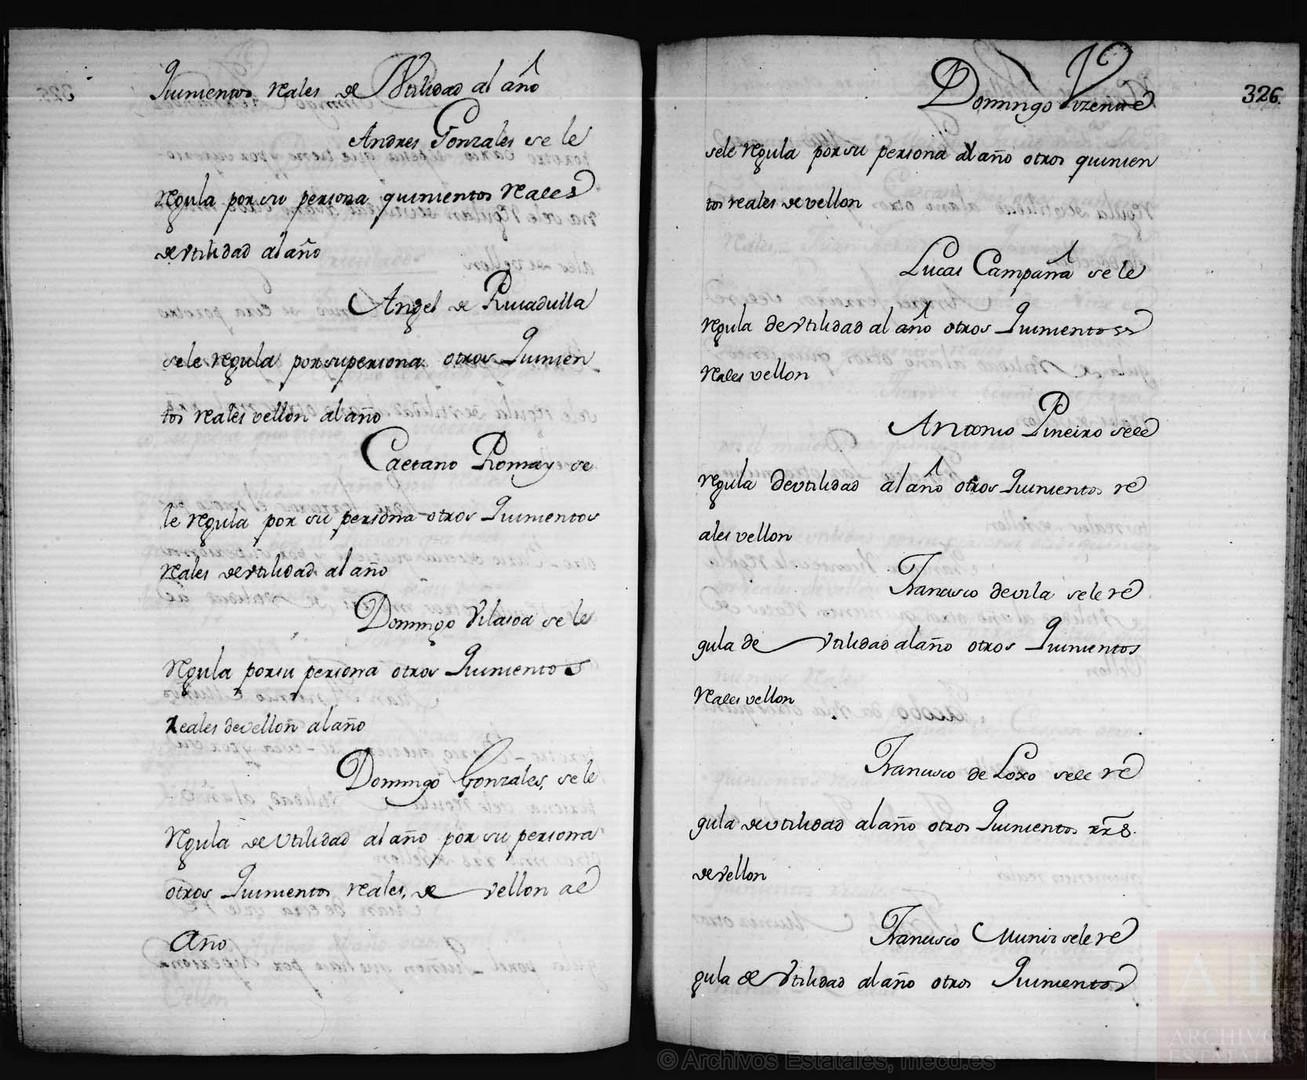 Quinientos reales de Vtilidad al año
Andres Gonzales se le
regula por su persona quinientos reales
de vtilidad al año
Angel de Rivadulla
sele regula por su persona otros Quinien
tos reales vellon al año
Caetano Romay se
le regula por su persona otros Quinientos
reales de vtilidad al año
Domingo Vilasoa se le
regula por su persona otros Quinientos
Reales de vellon al año
Domingo Gonzales, se le
regula de Vtilidad al año por su persona
otros Quinientos reales, de vellon al
Año
326.
Domingo Vizente
sele regula por su persona al año otros quinien
tos reales de vellon
Lucas Campaña se le
regula de vtilidad al año otros Quinientos
reales vellon
Antonio Pineiro sele
regula de vtilidad al año otros Quinientos re
ales vellon
Francisco de vila sele re
gula de Vtilidad al año otros Quinientos
reales vellon
Francisco de Loxo sele re
gula de vtilidad al año otros Quinientos rrs.
de vellon
Francisco Munis sele re
gula de Vtilidad al año otros Quinientos
© Archivos Estatales, mecd.es
ARCHIVOS
ESTATALES